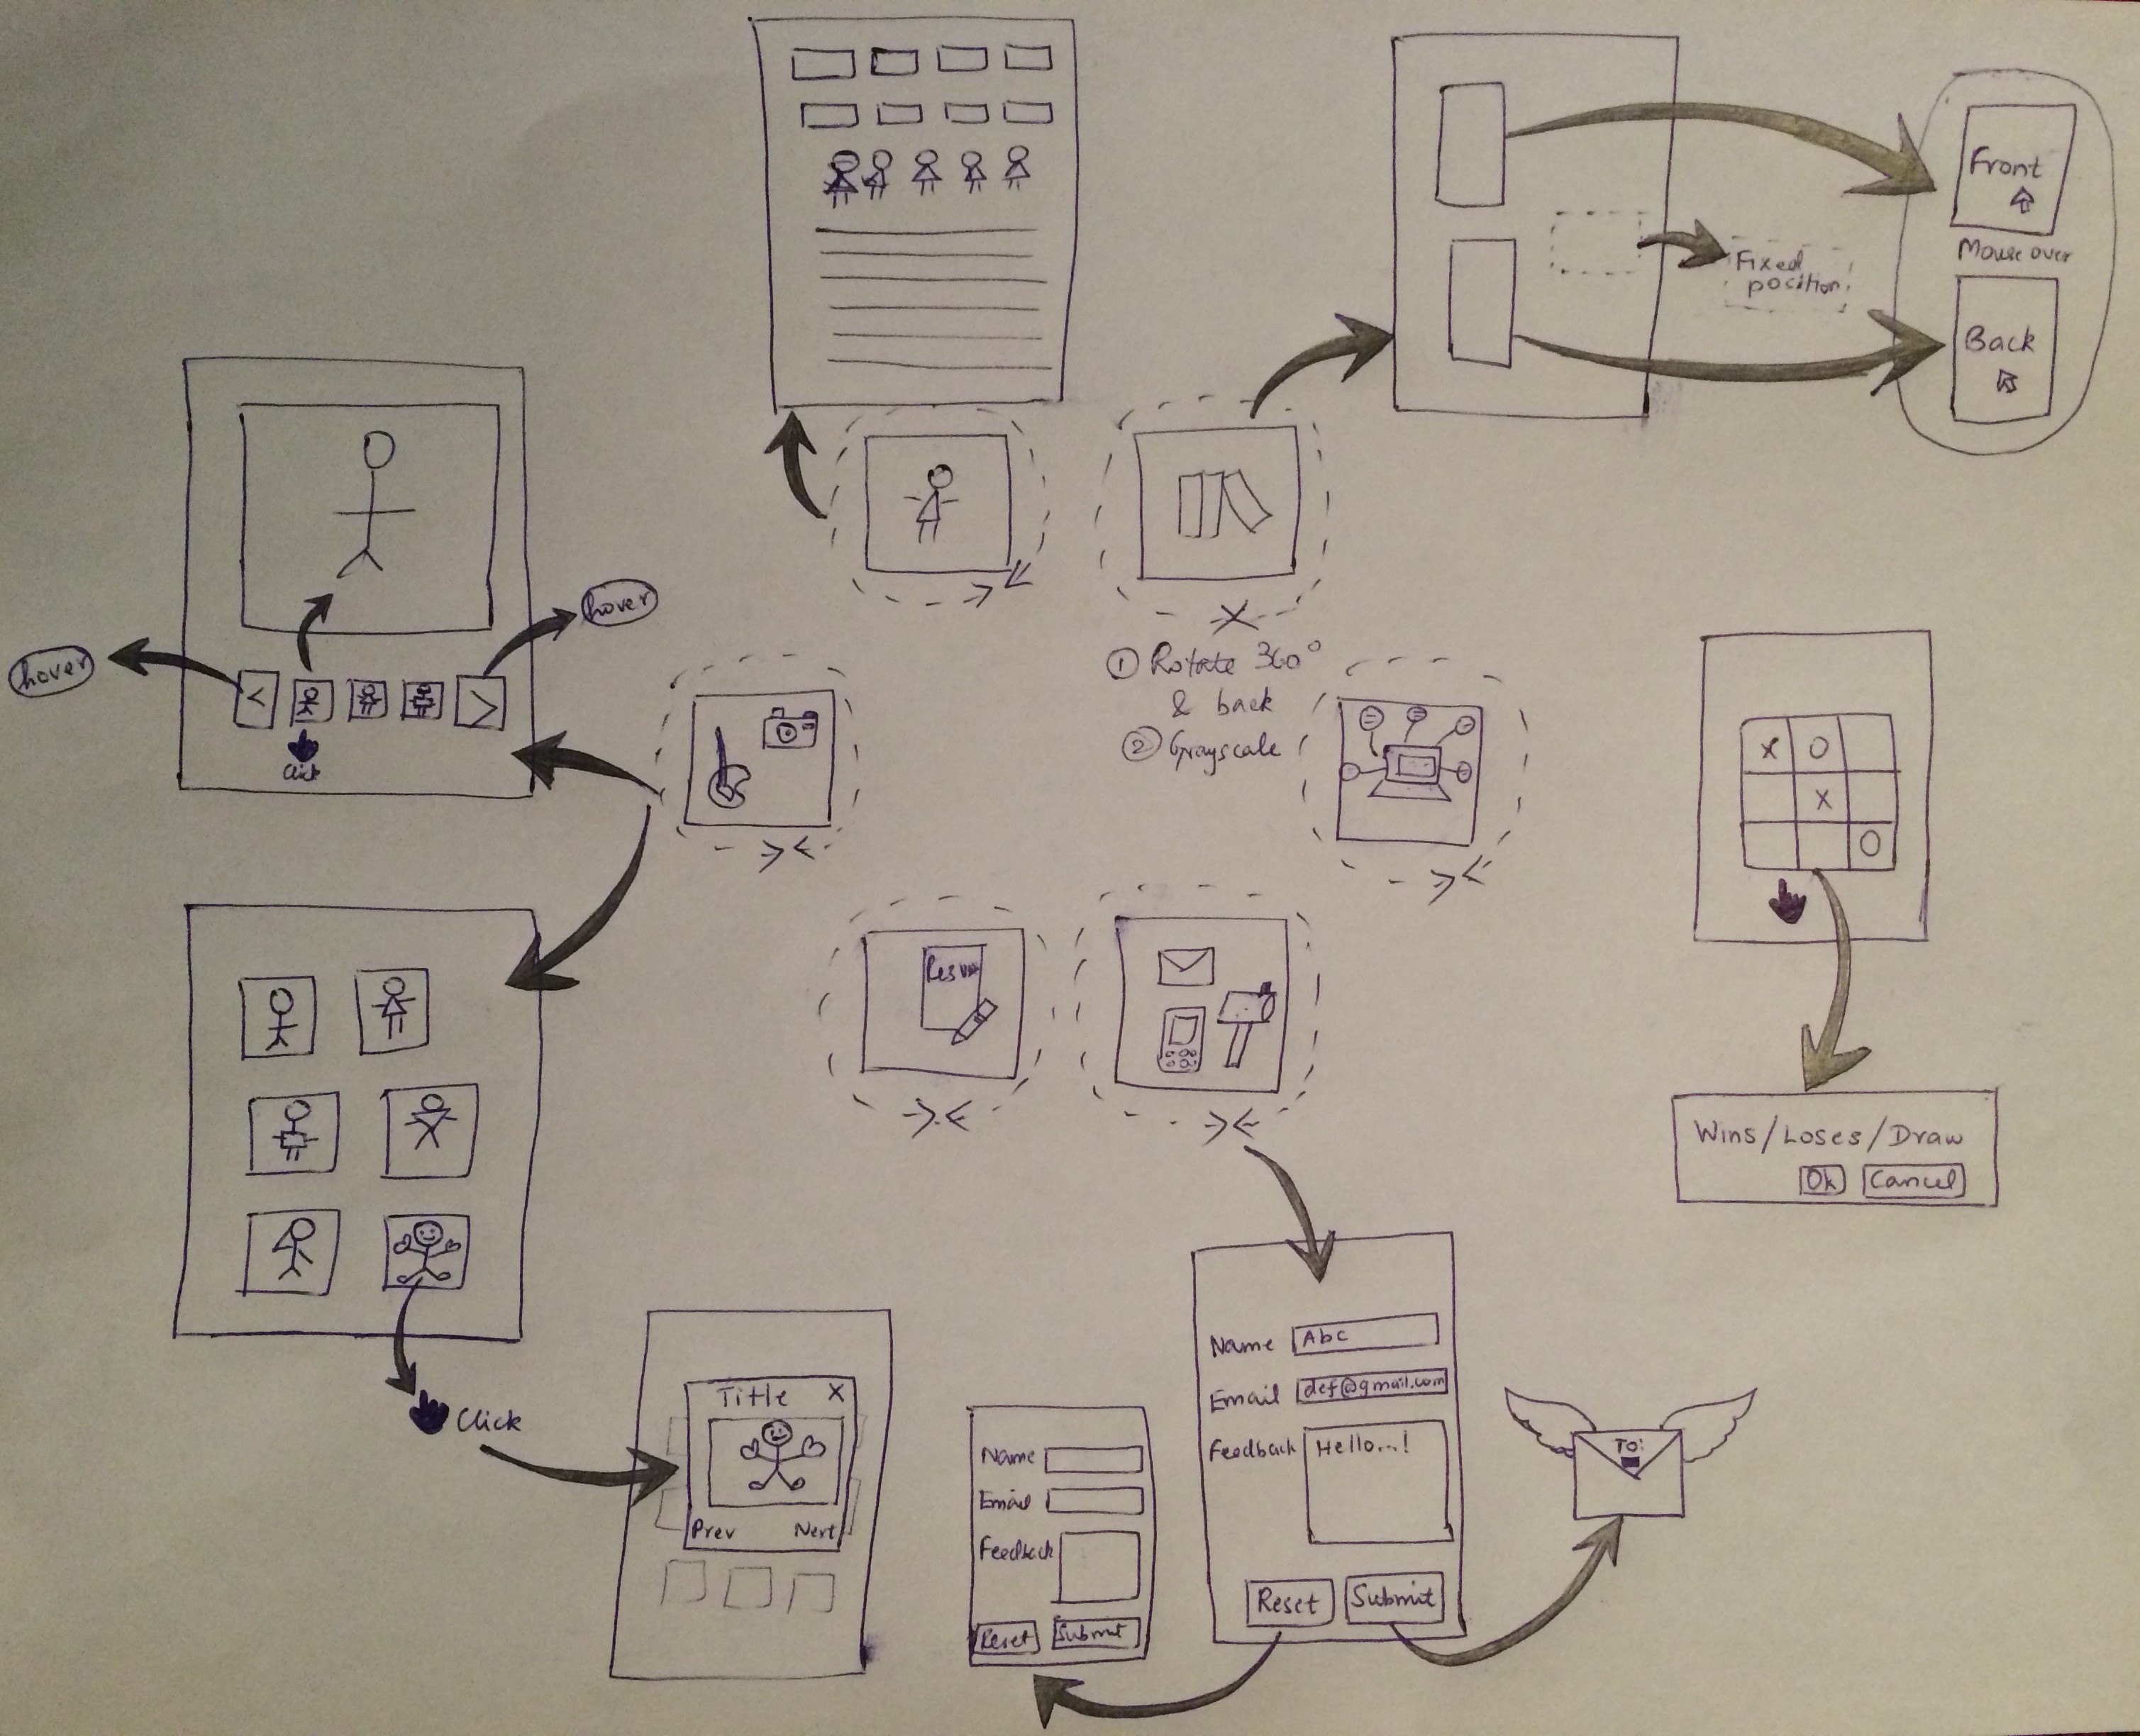 Front
Mouse over
Fixed
position
Back
hover
hover
<
>
Click
① Rotate 360°
& back
② Grayscale
X O
X
O
Wins/Loses/Draw
Ok Cancel
Click
Title X
Prev Next
Name
Email
Feedback
Reset Submit
Name Abc
Email def@gmail.com
Feedback Hello...!
Reset Submit
To: